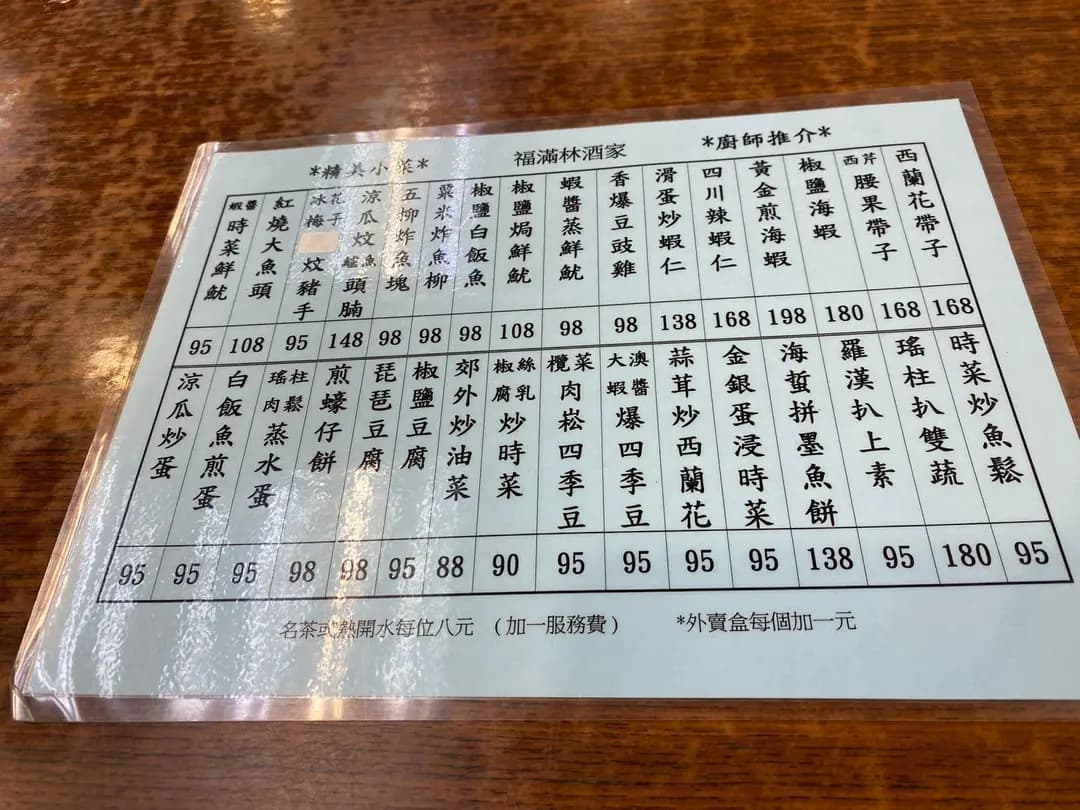 *精美小菜* 福滿林酒家 *廚師推介*
西蘭花帶子 168
西芹腰果帶子 168
椒鹽海蝦 180
黃金煎海蝦 198
四川辣蝦仁 168
滑蛋炒蝦仁 138
香爆豆豉雞 98
蝦醬蒸鮮魷 98
椒鹽焗鮮魷 108
椒鹽白飯魚 98
粟米炸魚柳 98
五柳炸魚塊 98
涼瓜炆鱸魚頭腩 148
冰花梅子炆豬手 95
紅燒大魚頭 108
蝦醬時菜鮮魷 95
時菜炒魚鬆 95
瑤柱扒雙蔬 180
羅漢扒上素 95
海蜇拼墨魚餅 138
金銀蛋浸時菜 95
蒜茸炒西蘭花 95
大澳蝦醬爆四季豆 95
欖菜肉崧四季豆 95
椒絲腐乳炒時菜 90
郊外炒油菜 88
椒鹽豆腐 95
琵琶豆腐 98
煎蠔仔餅 98
瑤柱肉鬆蒸水蛋 95
白飯魚煎蛋 95
涼瓜炒蛋 95
名茶或熱開水每位八元 (加一服務費) *外賣盒每個加一元